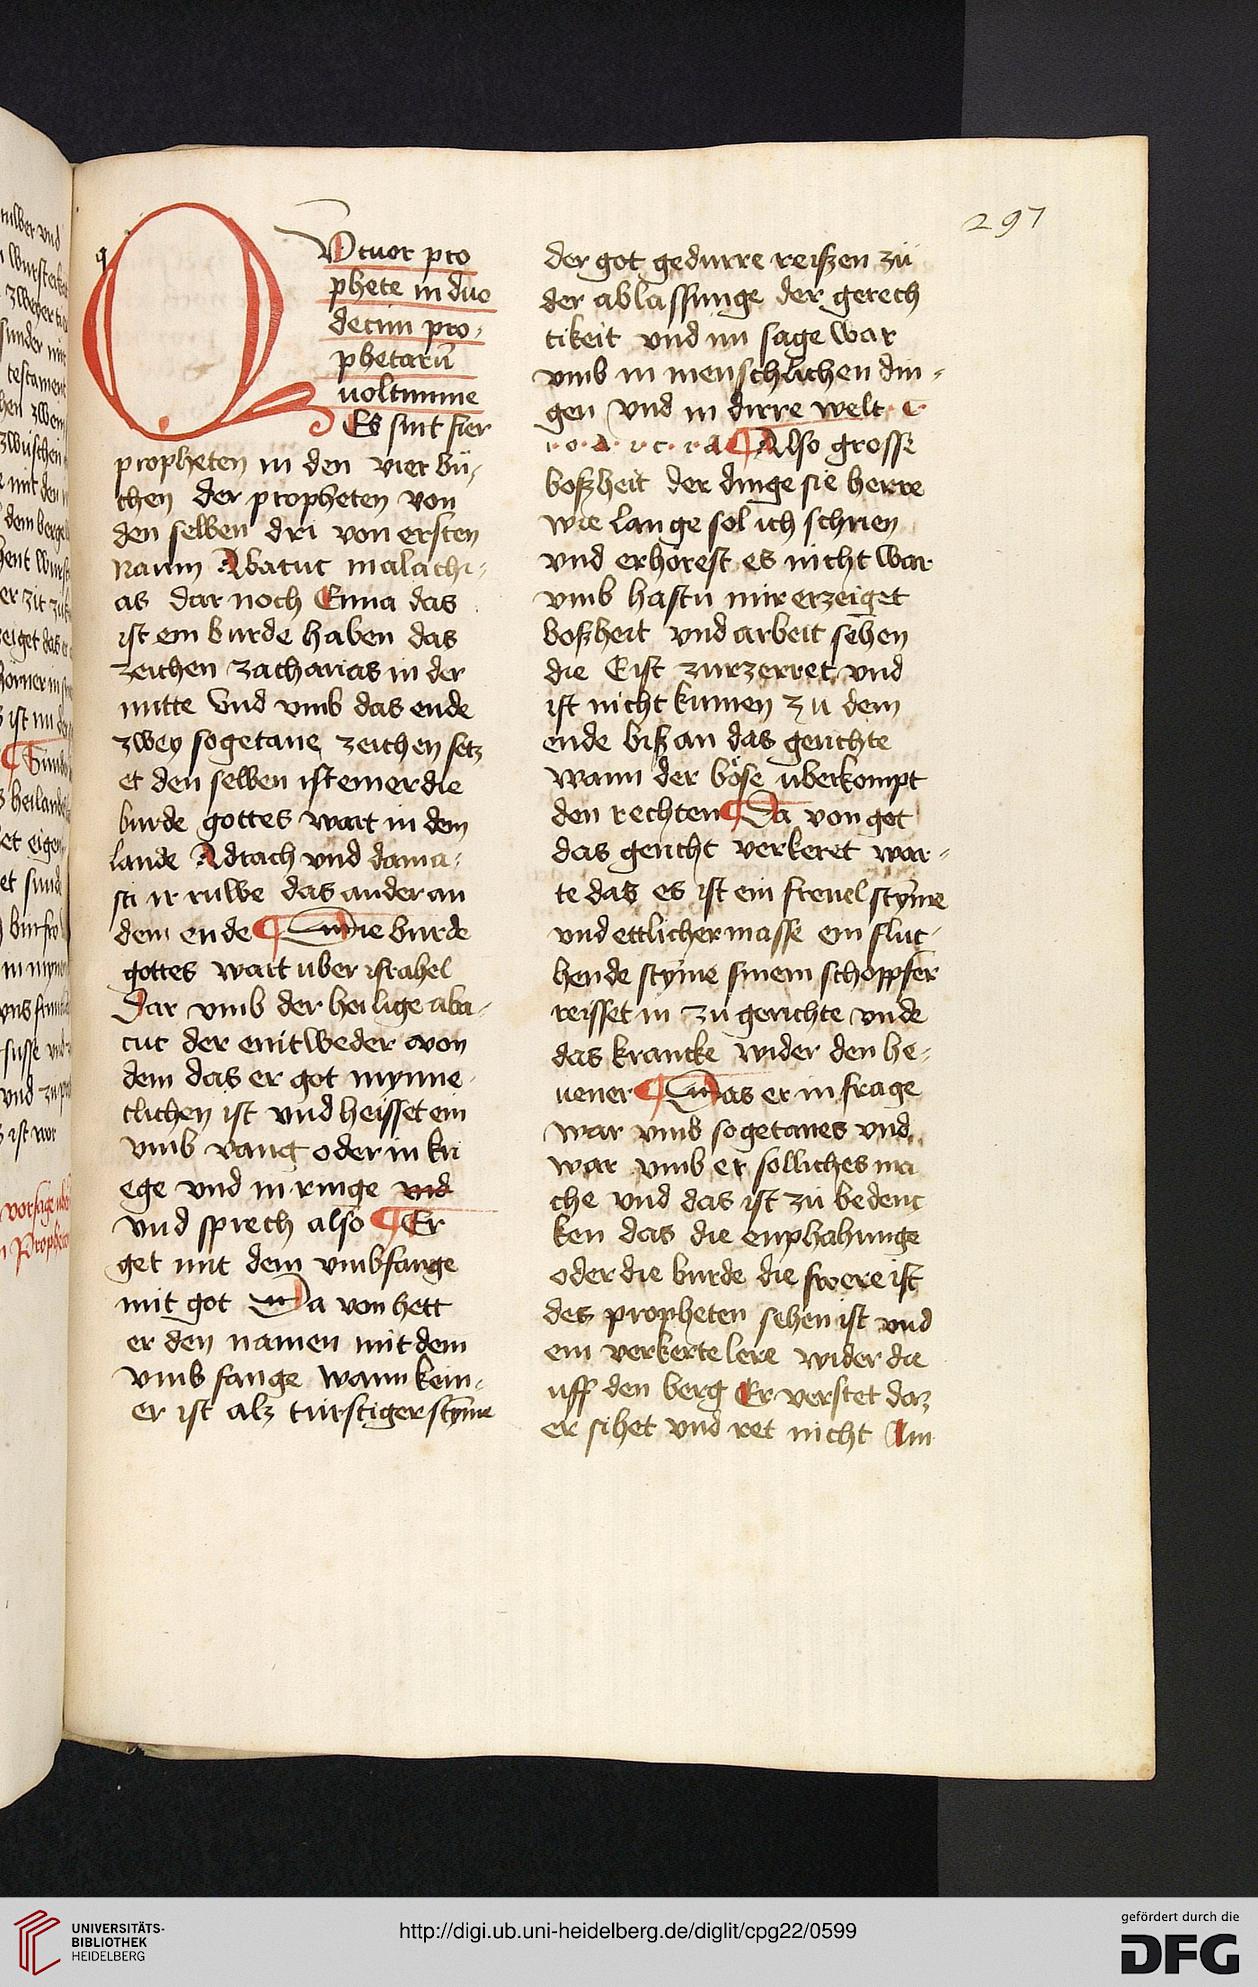 297
QVtuor pro
phete in duo
decim pro-
phetarū
uolumine
Es sint fier
propheten in den vier bü-
chen der propheten von
den selben dri von ersten
Naum Abacuc malachi-
as dar noch Enna das
ist ein burde haben das
zeichen zacharias in der
mitte Vnd vmb das ende
zwey sogetane zeichen setz
et den selben ist einer die
burde gottes wort in dem
lande Adrach vnd dama-
sti ir ruwe das ander an
dem ende ¶ Die burde
gottes wort uber israhel
Dar vmb der heilige aba-
cuc der entweder von
dem das er got mynne
clichen ist vnd heisset ein
vmb vang oder in kri
ege vnd in ringe vnd
vnd sprech also ¶ Er
get mit dem vmbfange
mit got Da von hett
er den namen mit dem
vmb fange wann kein-
er ist alz türstiger stȳme
der got gedurre reiszen zü
der ablassunge der gerech
tikeit vnd im sage war
vmb in menschlichen din-
gen vnd in dirre welt
¶ Also grosse
boszheit der dinge sie herre
wie lange sol ich schrien
vnd erhorest es nicht war
vmb hastu mir erzeiget
boszheit vnd arbeit sehen
die E ist zurzerret vnd
ist nicht kumen zu dem
ende bisz an das gerichte
wann der böse uberkompt
den rechten ¶ Da von get
das gericht verkeret war-
te das es ist ein freuel stȳme
vnd ettlicher masse ein fluc-
hende stȳme sinem schöppfer
reisset in zü gerichte vnde
das krancke wider den he-
uener ¶ Das er in frage
war vmb sogetanes vnd
war vmb er solliches ma
che vnd das ist zü bedenc
ken das die enphahunge
oder die burde die swere ist
des propheten sehen ist vnd
ein verkerte lere wider die
uff den berg Er verstet daz
er sihet vnd ret nicht Am
UNIVERSITÄTS-
BIBLIOTHEK
HEIDELBERG
http://digi.ub.uni-heidelberg.de/diglit/cpg22/0599
gefördert durch die
DFG